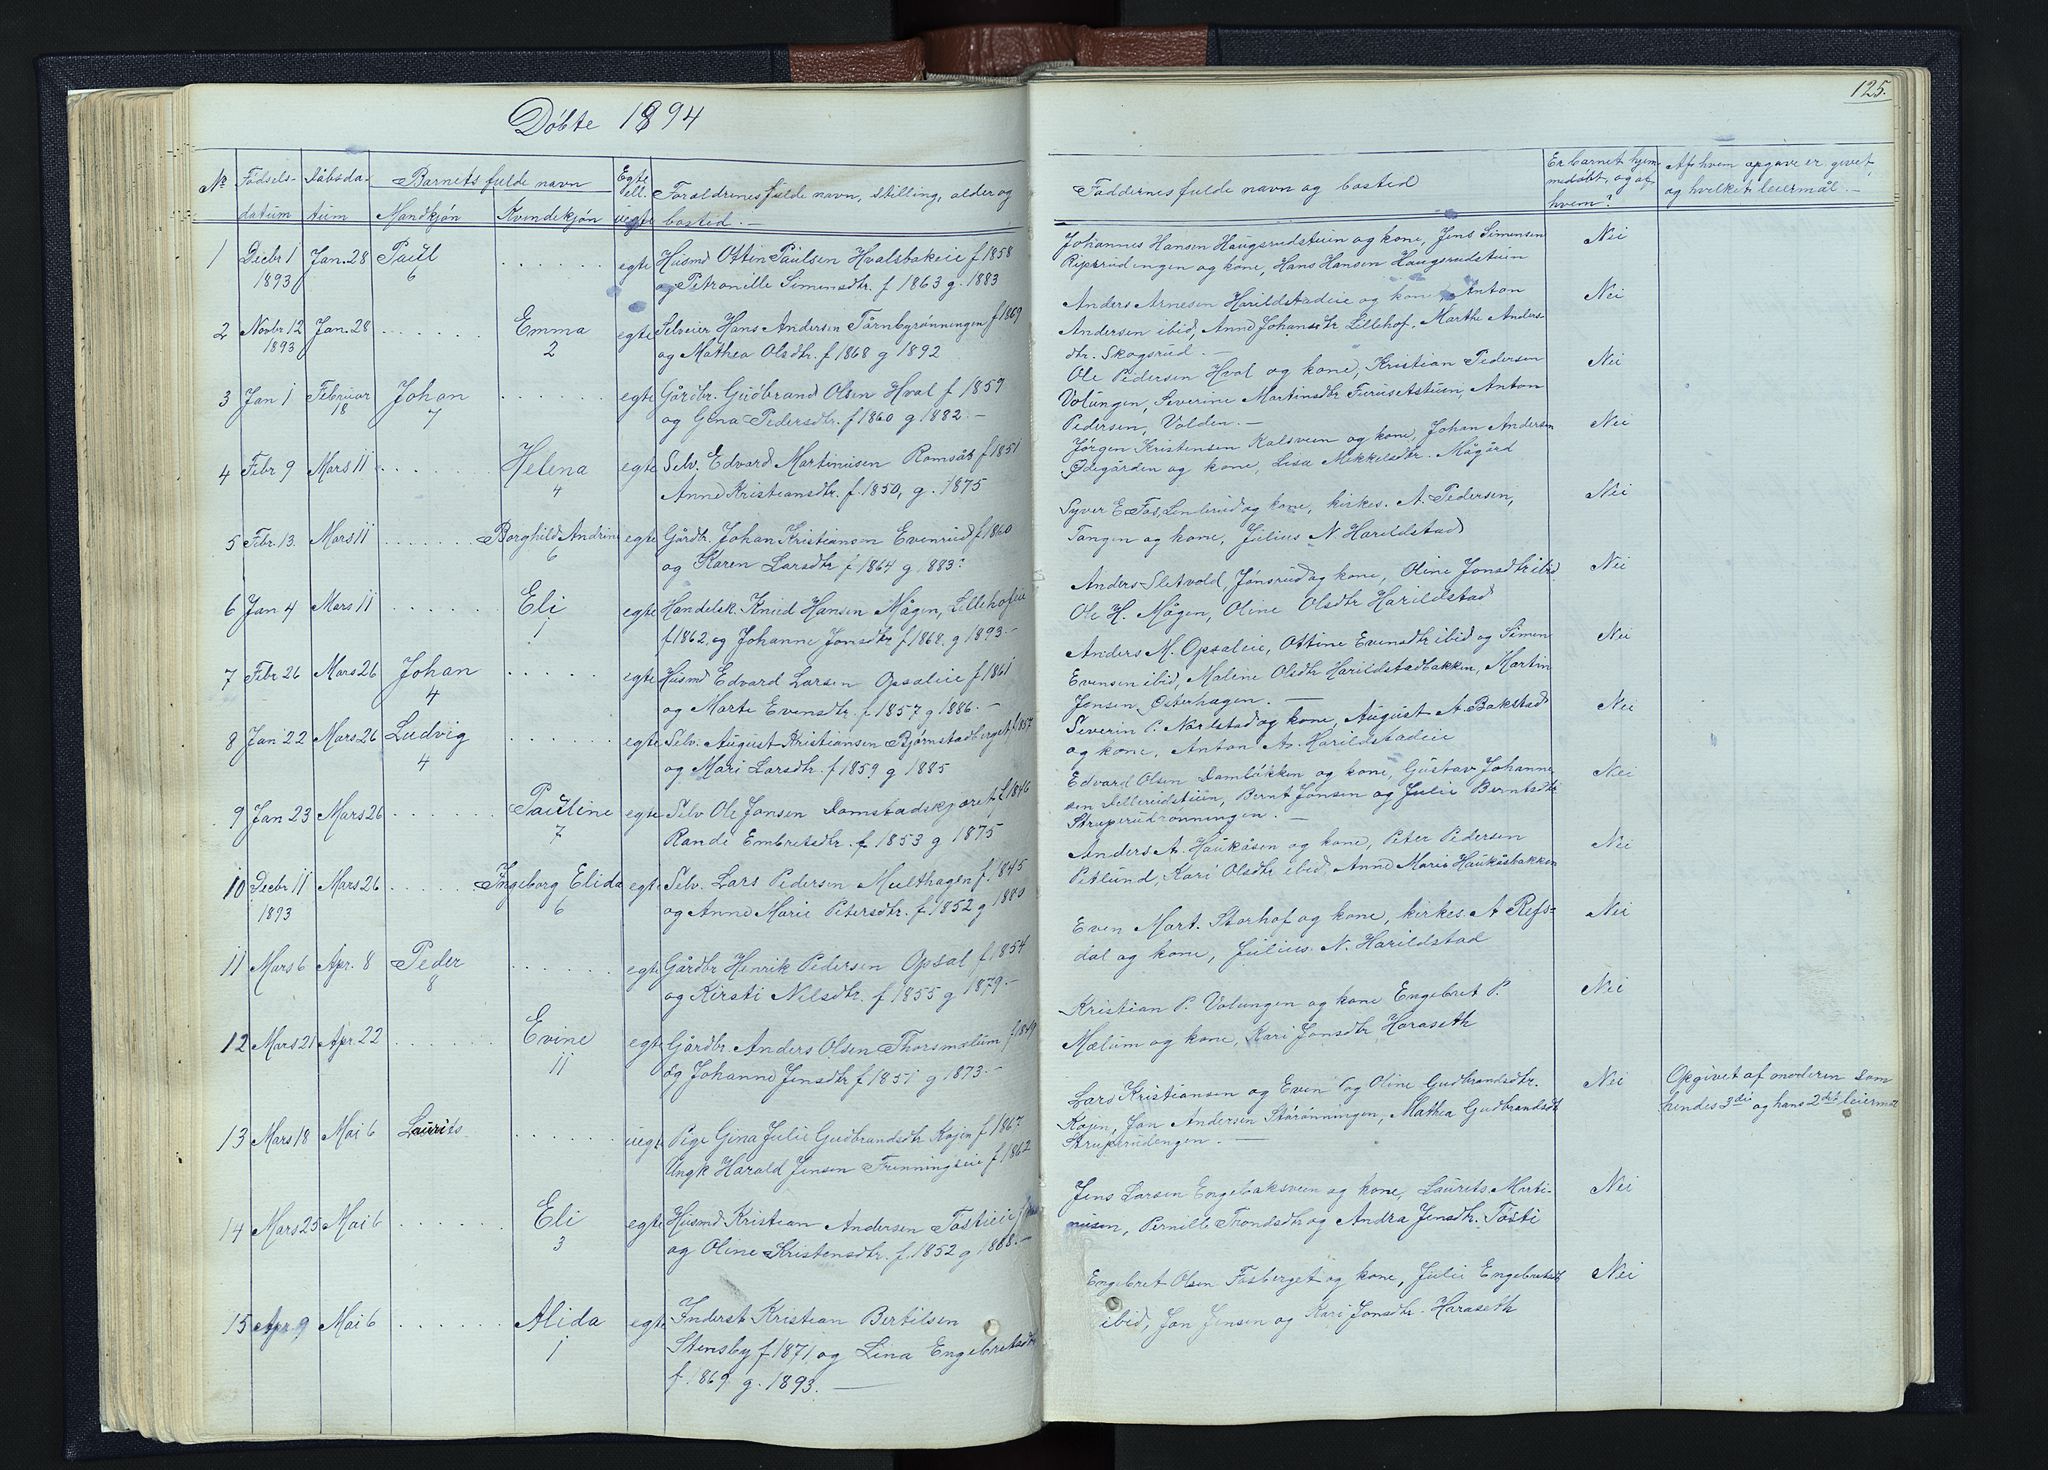 Døbte 1894
125.
No Fødsels- datum
Dåbsda- tum
Barnets fulde navn
Mandkjøn Kvindekjøn
Egte ell. uegte
Forældrenes fulde navn, stilling, alder og bosted. -
Faddernes fulde navn og bosted
Er barnet hjem- medøbt, og af hvem?
Af hvem opgave er givet, og hvilket leiermål. -
1 Decbr 1 1893 Jan. 28 Paul 6 egte Husmd Ottin Paulsen Hvalsbakeie f 1858
og Petronille Simensdtr. f 1863 g. 1883
Johannes Hansen Haugsrudstuen og kone, Jens Simensen
Ripsrudengen og kone, Hans Hansen Haugsrudstuen
Nei
2 Novbr 12 1893 Jan. 28 Emma 2 egte Selveier Hans Andersen Tårnbyrønningen f 1869
og Mathea Olsdtr. f 1868 g 1892
Anders Arnesen Harildstadeie og kone, Anton
Andersen ibid, Anne Johansdtr Lillehof, Marthe Anders-
dtr. Skogsrud. -
Nei
3 Jan 1 Februar 18 Johan 7 egte Gårdbr. Gudbrand Olsen Hval f 1857
og Gina Pedersdtr. f 1860 g 1882. -
Ole Pedersen Hval og kone, Kristian Pedersen
Volungen, Severine Martinsdtr Furusetstuen, Anton
Pedersen, Volden. -
Nei
4 Febr 9 Mars 11 Helena 4 egte Selv. Edvard Martinusen Romsås f 1851
Anne Kristiansdtr. f. 1850, g. 1875
Jørgen Kristensen Kalsveen og kone, Johan Andersen
Ødegården og kone, Lisa Mikkelsdtr. Mågård
Nei
5 Febr. 13. Mars 11 Borghild Andrine 6 egte Gårdbr. Johan Kristiansen Evenrud f 1860
og Karen Larsdtr f 1864 g 1883.
Syver E. Fos, Linlerud og kone, kirkes. A. Pedersen,
Tangen og kone, Julius N Harildstad
Nei
6 Jan 4 Mars 11 Eli 1 egte Handelsk. Knud Hansen Mågen, Lillehofeie
f 1862 og Johanne Jonsdtr f 1868. g 1893. -
Anders Sletvold Jønsrud og kone, Oline Jonsdtr ibid
Ole H. Mågen, Oline Olsdtr Harildstad
Nei
7 Febr 26 Mars 26 Johan 4 egte Husmd Edvard Larsen Opsaleie f 1861
og Marte Evensdtr. f 1857 g 1886. -
Anders M. Opsaleie, Ottine Evensdtr ibid og Simen
Evensen ibid, Maline Olsdtr Harildstadbakken, Martin
Jensen Østerhagen. -
Nei
8 Jan 22 Mars 26 Ludvig 4 egte Selv. August Kristiansen Bjørnstadberget f. 1857
og Mari Larsdtr. f 1859 g 1885
Severin P. Narlstad og kone, August A. Bakstad
og kone, Anton A. Harildstadeie
Nei
9 Jan 23 Mars 26 Pauline 7 egte Selv Ole Jonsen Damstadskjæret f 1846
Randi Embretsdtr. f 1853 g 1875
Edvard Olsen Damløkken og kone, Gustav Johanne-
sen Lillerudstuen, Bernt Jonsen og Julie Berntsdtr
Struperudrønningen. -
Nei
10 Decbr 11 1893 Mars 26 Ingeborg Elida 6 egte Selv. Lars Pedersen Multhagen f. 1845
og Anne Marie Petersdtr. f. 1852 g 1880
Anders A. Haukåsen og kone, Peter Pedersen
Petlund, Kari Olsdtr ibid, Anne Marie Haukåsbakken
Nei
11 Mars 6 Apr. 8 Peder 8 egte Gårdbr Henrik Pedersen Opsal f 1854
og Kirsti Nilsdtr. f 1855 g 1879. -
Even Mart. Storhof og kone, kirkes. A Refs-
dal og kone, Julius N. Harildstad
Nei
12 Mars 21 Apr. 22 Evine 11 egte Gårdbr. Anders Olsen Thorsmælum f 1849
og Johanne Jensdtr f 1851 g 1873. -
Kristian P. Volungen og kone Engebret P.
Mælum og kone, Kari Jonsdtr. Haraseth
Nei
13 Mars 18 Mai 6 Laurits uegte Pige Gina Julie Gudbrandsdtr Kojen f 1867
Ungk Harald Jensen Frenningseie f 1862
Lars Kristiansen og Even og Oline Gudbrandsdtr.
Kojen, Jon Andersen Stårønningen, Mathea Gudbrandsdtr
Struperudengen. -
Nei
Opgivet af moderen som
hendes 3die og hans 2det leiermål
14 Mars 25 Mai 6 Eli 3 egte Husmd Kristian Andersen Tostieie
og Oline Kristensdtr. f. 1852 g 1888. -
Jens Larsen Engebaksveen og kone, Laurits Marti-
nusen, Pernille Trondsdtr og Andra Jensdtr. Tosti
Nei
15 Apr 9 Mai 6 Alida 1 egte Inderst Kristian Bertilsen
Stensby f 1871 og Lina Engebretsdtr
f. 1869. g. 1893. -
Engebret Olsen Fosberget og kone, Julie Engebretsdtr
ibid, Jon Jensen og Kari Jonsdtr. Haraseth
Nei